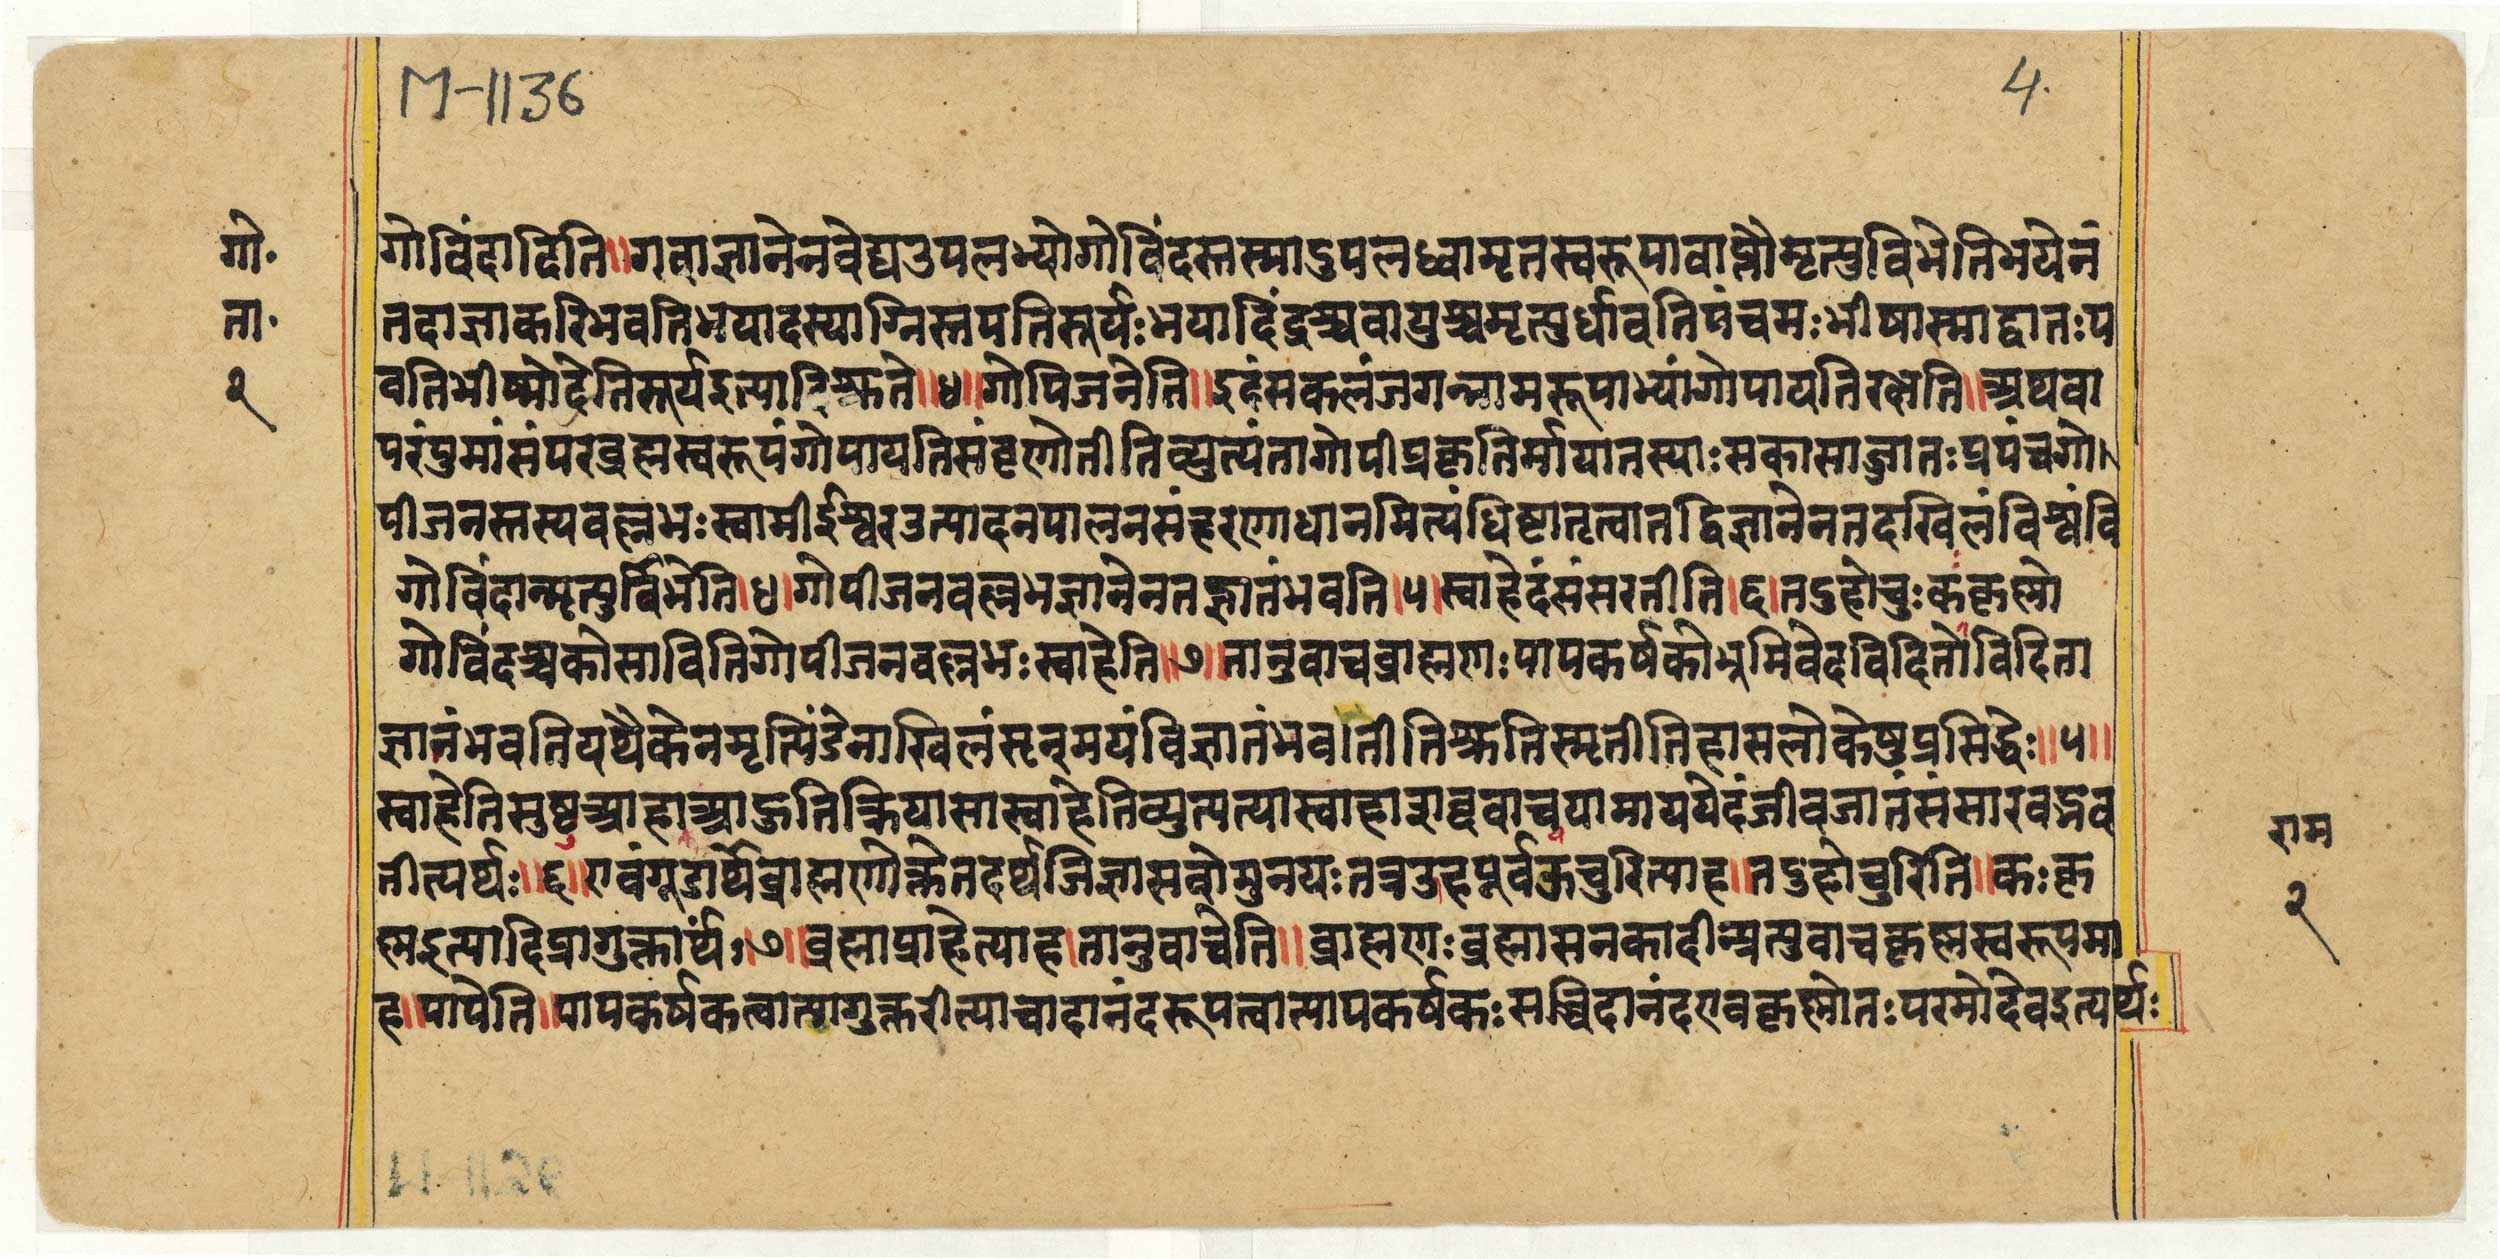 M-1136
4.
गो.
ता.
२
गोविंदादिति॥गवाज्ञानेनवेद्यउपलभ्योगोविंदस्तस्मादुपलध्वामृतस्वरूपावाप्तौमृत्युविभेतिभयेन
तदाज्ञाकरिभवतिभयादस्याग्निस्तपतिसूर्यः भयादिंद्रश्चवायुश्चमृत्युर्धावतिपंचमः भीषास्माद्वातःप
वतिभीष्मोदेतिसूर्यइत्यादिश्रुतेः॥४॥गोपिजनेति॥इदंसकलंजगन्नामरूपाभ्यांगोपायतिरक्षेति॥अथवा
परंपुमांसंपरब्रह्मस्वरूपंगोपायतिसंवृणोतीतिव्युत्यंतागोपीप्रकृतिर्मायातस्याःसकासाज्जातःप्रपंचगो
पीजनस्तस्यवल्लभःस्वामीईश्वरउत्पादनपालनसंहरणाधानमित्यंधिष्टातृत्वातद्विज्ञानेनतदखिलंविश्वंवि
गोविंदान्मृत्युर्बिभेति।४।गोपीजनवल्लभज्ञानेनतज्ज्ञातंभवति।५।स्वाहेदंसंसरतीति।६।तदुहोचुःकःकृष्णो
गोविंदश्चकोसावितिगोपीजनवल्लभःस्वाहेति॥७॥तानुवाचब्राह्मणःपापकर्षकोभूमिवेदविदितोविदिता
ज्ञानंभवतियथैकेनमृत्पिंडेनाखिलंमृन्मयंविज्ञातंभवतीतिश्रुतिस्मृतीतिहासलोकेषुप्रसिद्धेः॥५॥
स्वाहेतिसुष्ठुआहाआहुतिक्रियासास्वाहेतिव्युत्पत्यास्वाहाशब्दवाच्ययामाययेदंजीवजातंसंसारवद्भव
तीत्यर्थः॥६॥एवंगूढार्थेब्राह्मणोक्तेतदर्थजिज्ञासवोमुनयःतत्रउहपूर्वकमूचुरित्याह॥तदुहोचुरिति॥कःकृ
ष्णइत्यादिप्रागुक्तार्थं॥७॥ब्रह्माप्राहेत्याह।तानुवाचेति॥ब्राह्मणःब्रह्मासनकादीन्प्रत्युवाचकृष्णस्वरूपमा
ह॥पापेति॥पापकर्षकत्वात्प्रागुक्तरीत्याचादानंदरूपत्वात्पापकर्षकःसच्चिदानंदएवकृष्णोतःपरमोदेवइत्यर्थः
राम
२